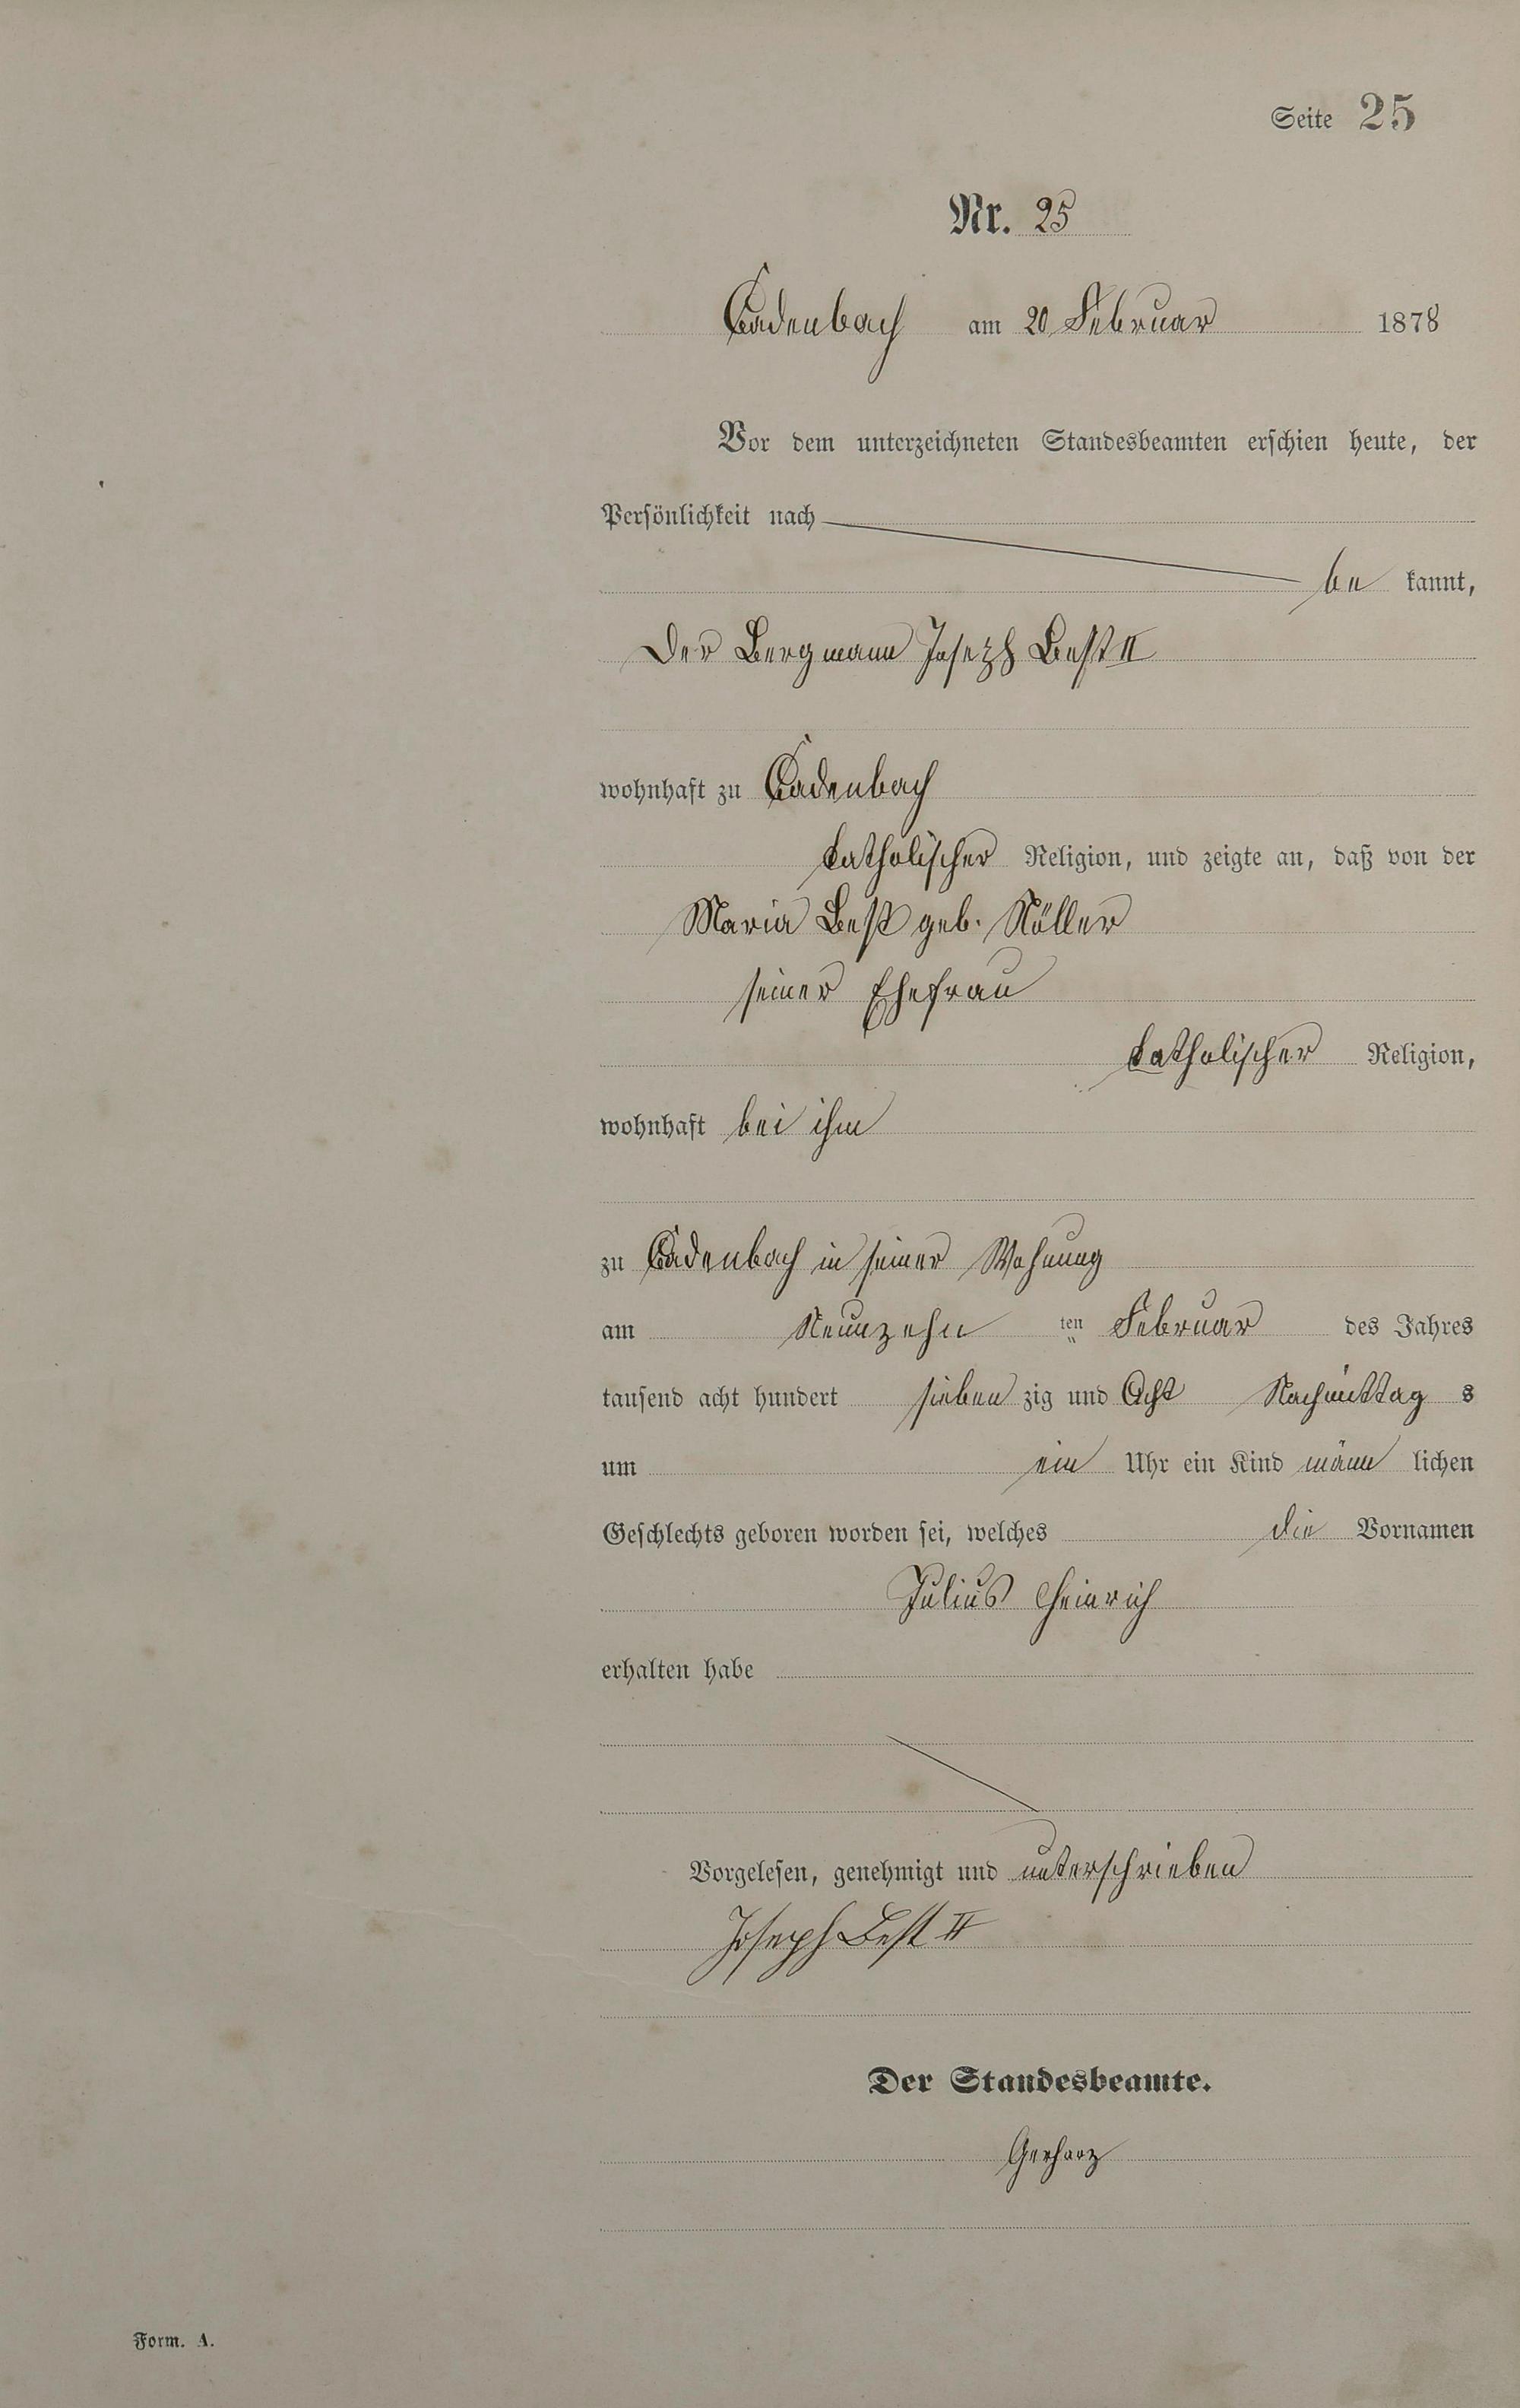 Seite 25
Nr. 25
Cadenbach am 20 Februar 1878
Vor dem unterzeichneten Standesbeamten erschien heute, der
Persönlichkeit nach
be kannt,
Der Bergmann Joseph Best II
wohnhaft zu Cadenbach
katholischer Religion, und zeigte an, daß von der
Maria Best geb. Nöller
seiner Ehefrau
katholischer Religion,
wohnhaft bei ihm
zu Cadenbach in seiner Wohnung
am Neunzehn ten Februar des Jahres
tausend acht hundert sieben zig und Acht Nachmittag s
um ein Uhr ein Kind männ lichen
Geschlechts geboren worden sei, welches die Vornamen
Julius Heinrich
erhalten habe
Vorgelesen, genehmigt und unterschrieben
Joseph Best II
Der Standesbeamte.
Gerharz
Form. A.